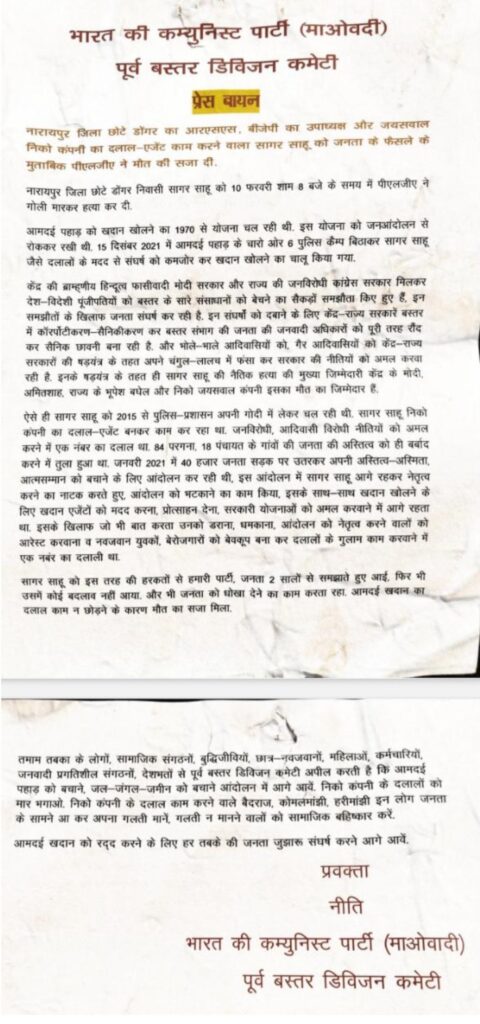 भारत की कम्युनिस्ट पार्टी (माओवदी)
पूर्व बस्तर डिविजन कमेटी
प्रेस बायन
नारायपुर जिला छोटे डोंगर का आरएसएस, बीजेपी का उपाध्यक्ष और जयसवाल
निको कंपनी का दलाल-एजेंट काम करने वाला सागर साहू को जनता के फैसले के
मुताबिक पीएलजीए ने मौत की सजा दी.
नारायपुर जिला छोटे डोंगर निवासी सागर साहू को 10 फरवरी शाम 8 बजे के समय में पीएलजीए ने
गोली मारकर हत्या कर दी.
आमदई पहाड़ को खदान खोलने का 1970 से योजना चल रही थी. इस योजना को जनआंदोलन से
रोककर रखी थी. 15 दिसंबर 2021 में आमदई पहाड़ के चारो ओर 6 पुलिस कैम्प बिठाकर सागर साहू
जैसे दलालों के मदद से संघर्ष को कमजोर कर खदान खोलने का चालू किया गया.
केंद्र की ब्राम्हणीय हिन्दुत्व फासीवादी मोदी सरकार और राज्य की जनविरोधी कांग्रेस सरकार मिलकर
देश-विदेशी पूंजीपतियों को बस्तर के सारे संसाधानों को बेचने का सैकड़ों समझौता किए हुए हैं, इन
समझौतों के खिलाफ जनता संघर्ष कर रही है. इन संघर्षों को दबाने के लिए केंद्र-राज्य सरकारें बस्तर
में कॉरपोंटीकरण-सैनिकीकरण कर बस्तर संभाग की जनता की जनवादी अधिकारों को पूरी तरह रौंद
कर सैनिक छावनी बना रही है. और भोले-भाले आदिवासीयों को, गैर आदिवासीयों को केंद्र-राज्य
सरकारों की षड़यंत्र के तहत अपने चंगुल-लालच में फंसा कर सरकार की नीतियों को अमल करवा
रही है. इनके षड़यंत्र के तहत ही सागर साहू की नैतिक हत्या की मुख्या जिम्मेदारी केंद्र के मोदी,
अमितशाह, राज्य के भूपेश बघेल और निको जयसवाल कंपनी इसका मौत का जिम्मेदार हैं.
ऐसे ही सागर साहू को 2015 से पुलिस-प्रशासन अपनी गोदी में लेकर चल रही थी. सागर साहू निको
कंपनी का दलाल-एजेंट बनकर काम कर रहा था. जनविरोधी, आदिवासी विरोधी नीतियों को अमल
करने में एक नंबर का दलाल था. 84 परगना, 18 पंचायत के गांवों की जनता की अस्तित्व को ही बर्बाद
करने में तुला हुआ था. जनवरी 2021 में 40 हजार जनता सड़क पर उतरकर अपनी अस्तित्व-अस्मिता,
आत्मसम्मान को बचाने के लिए आंदोलन कर रही थी, इस आंदोलन में सागर साहू आगे रहकर नेतृत्व
करने का नाटक करते हुए, आंदोलन को भटकाने का काम किया, इसके साथ-साथ खदान खोलने के
लिए खदान एजेंटों को मदद करना, प्रोत्साहन देना, सरकारी योजनाओं को अमल करवाने में आगे रहता
था. इसके खिलाफ जो भी बात करता उनको डराना, धमकाना, आंदोलन को नेतृत्व करने वालों को
आरेस्ट करवाना व नवजवान युवकों, बेरोजगारों को बेवकूप बना कर दलालों के गुलाम काम करवाने में
एक नंबर का दलाली था.
सागर साहू को इस तरह की हरकतों से हमारी पार्टी, जनता 2 सालों से समझाते हुए आई, फिर भी
उसमें कोई बदलाव नहीं आया. और भी जनता को धोखा देने का काम करता रहा. आमदई खदान का
दलाल काम न छोड़ने के कारण मौत का सजा मिला.
तमाम तबका के लोगों, सामाजिक संगठनों, बुद्धिजीवियों, छात्र-नवजवानों, महिलाओं, कर्मचारियों,
जनवादी प्रगतिशील संगठनों, देशभतों से पूर्व बस्तर डिविजन कमेटी अपील करती है कि आमदई
पहाड़ को बचाने, जल-जंगल-जमीन को बचाने आंदोलन में आगे आवें. निको कंपनी के दलालों को
मार भगाओ. निको कंपनी के दलाल काम करने वाले बैदराज, कोमलमांझी, हरीमांझी इन लोग जनता
के सामने आ कर अपना गलती मानें, गलती न मानने वालों को सामाजिक बहिष्कार करें.
आमदई खदान को रद्द करने के लिए हर तबके की जनता जुझारू संघर्ष करने आगे आवें.
प्रवक्ता
नीति
भारत की कम्युनिस्ट पार्टी (माओवादी)
पूर्व बस्तर डिविजन कमेटी